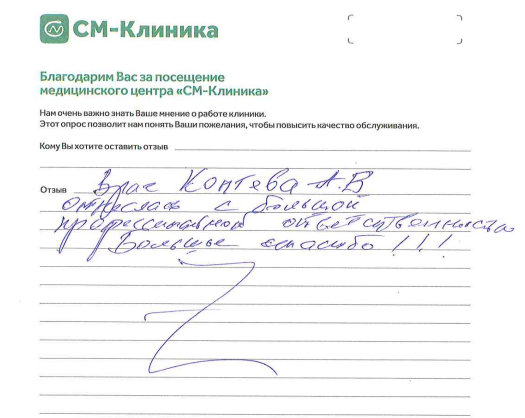 СМ-Клиника
Благодарим Вас за посещение
медицинского центра «СМ-Клиника»
Нам очень важно знать Ваше мнение о работе клиники.
Этот опрос позволит нам понять Ваши пожелания, чтобы повысить качество обслуживания.
Кому Вы хотите оставить отзыв
Отзыв Врач Коптева А.В
отнеслась с большой
профессиональной ответственностью
Большое спасибо!!!